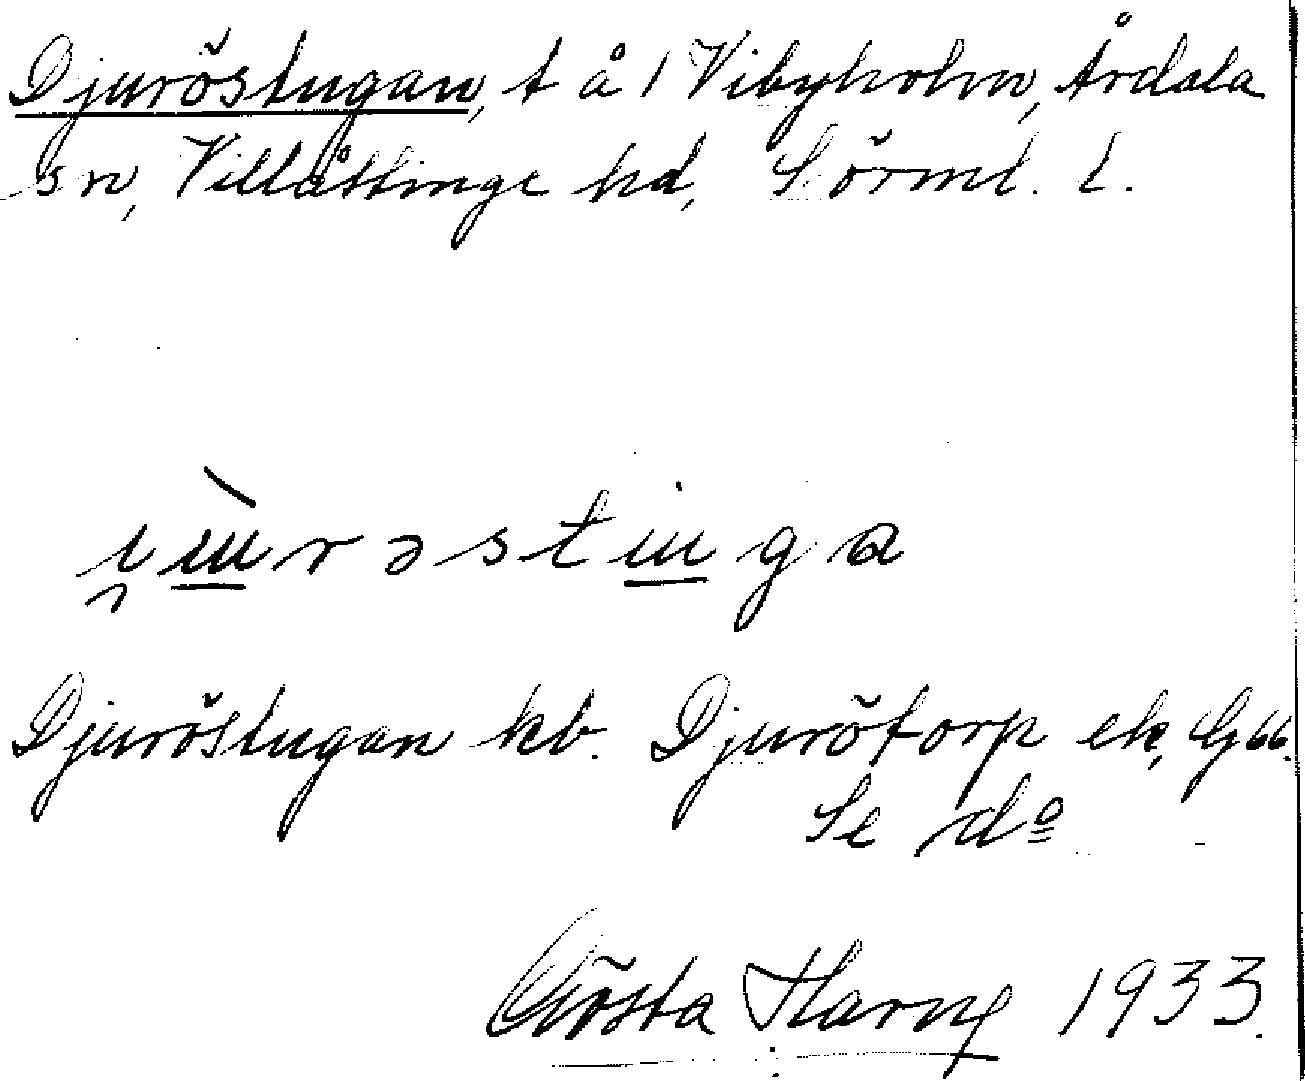 Djuröstugan, t å 1 Vibyholm, Årdala
sn, Villåttinge hd, Sörml. l.
Djuröstugan kb. Djurötorp ek, G 66.
Se do
Gösta Harng 1933.